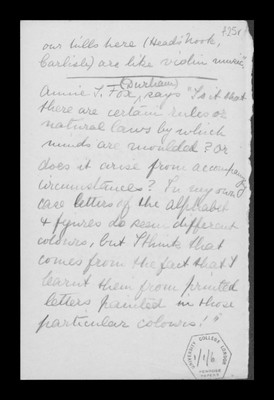 our hills here (Head's Nook,
Carlisle) are like violin music.
(Durham)
Annie L. Fox, says "Is it that
there are certain rules or
natural laws by which
minds are moulded? Or
does it arise from accompanying
circumstances? In my own
case letters of the alphabet
& figures do seem different
colours, but I think that
comes from the fact that I
learnt them from printed
letters painted in those
particular colours!"
UNIVERSITY COLLEGE LONDON